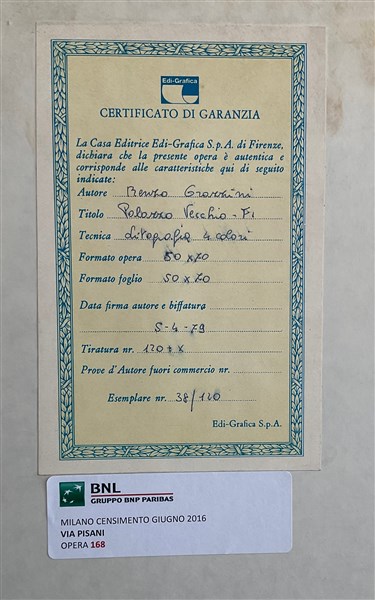 Edi-Grafica
CERTIFICATO DI GARANZIA
La Casa Editrice Edi-Grafica S.p.A. di Firenze,
dichiara che la presente opera è autentica e
corrisponde alle caratteristiche qui di seguito
indicate:
Autore Renzo Grazzini
Titolo Palazzo Vecchio - Fi
Tecnica Litografia 4 colori
Formato opera 50 x 70
Formato foglio 50 x 70
Data firma autore e biffatura
5-4-79
Tiratura nr. 120 + X
Prove d'Autore fuori commercio nr.
Esemplare nr. 38/120
Edi-Grafica S.p.A.
BNL
GRUPPO BNP PARIBAS
MILANO CENSIMENTO GIUGNO 2016
VIA PISANI
OPERA 168